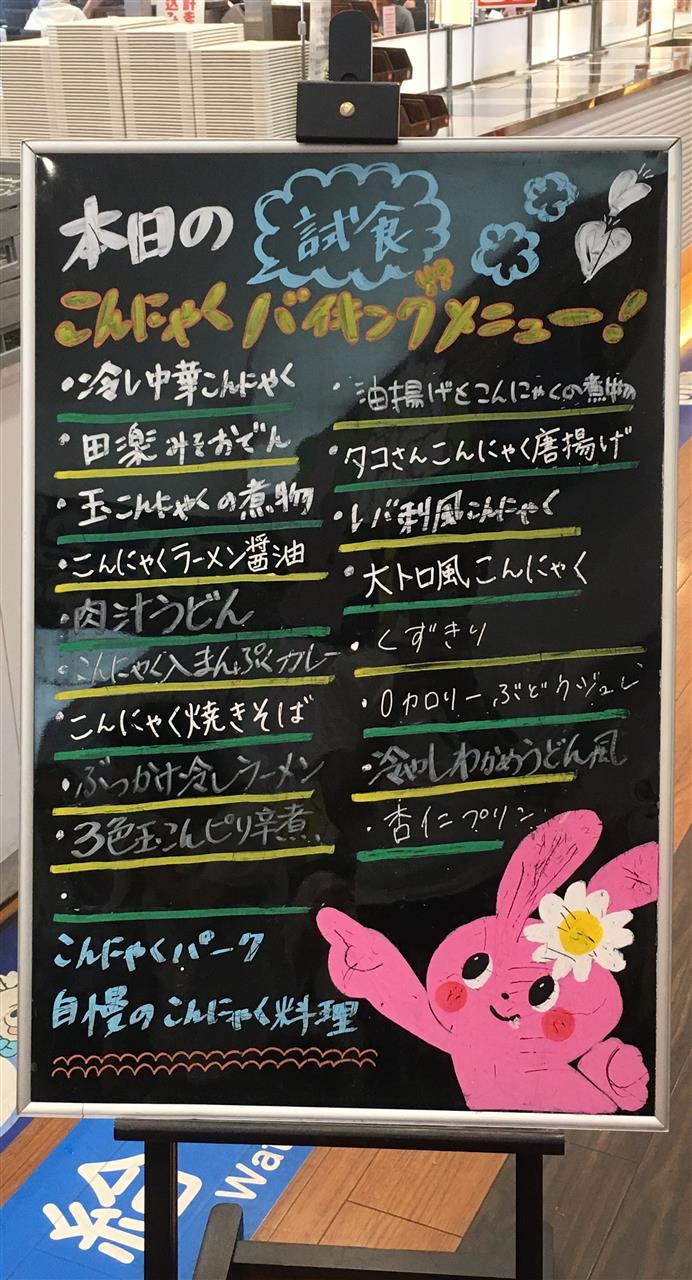 本日の 試食
こんにゃくバイキングメニュー!
・冷し中華こんにゃく
・田楽みそおでん
・玉こんにゃくの煮物
・こんにゃくラーメン醤油
・肉汁うどん
・こんにゃく入まんぷくカレー
・こんにゃく焼きそば
・ぶっかけ冷しラーメン
・3色玉こんピリ辛煮
・
・油揚げとこんにゃくの煮物
・タコさんこんにゃく唐揚げ
・レバ刺風こんにゃく
・大トロ風こんにゃく
・くずきり
・0カロリーぶどうジュレ
・冷やしわかめうどん風
・杏仁プリン
こんにゃくパーク
自慢のこんにゃく料理
給
Wat